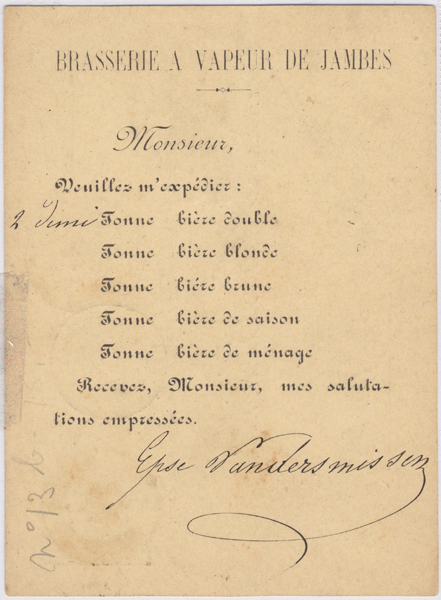 BRASSERIE A VAPEUR DE JAMBES
Monsieur,
Veuillez m'expédier :
2 demi Tonne bière double
Tonne bière blonde
Tonne biére brune
Tonne bière de saison
Tonne bière de ménage
Recevez, Monsieur, mes saluta-
tions empressées.
Epse Vandersmissen
n° 13 b